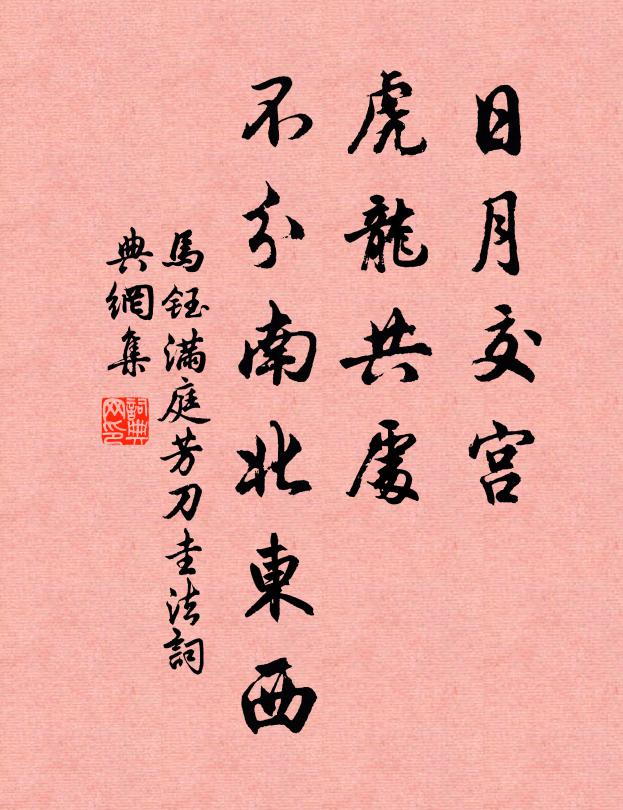 日月交宮
虎龍共處
不分南北東西
馬鈺滿庭芳刀圭法詞
典網集
詞典
网印